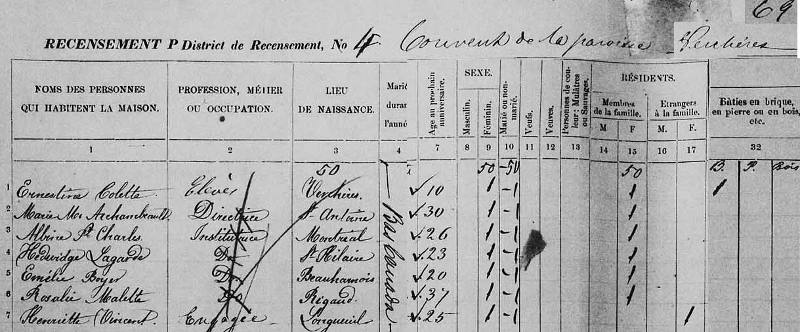 69
RECENSEMENT P District de Recensement, No 4 Couvent de la paroisse Verchères
NOMS DES PERSONNES QUI HABITENT LA MAISON. PROFESSION, MÉTIER OU OCCUPATION. LIEU DE NAISSANCE. Marié durant l'anné Age au prochain anniversaire. SEXE. Masculin. Féminin. Marié ou non-marié. Veufs. Veuves. Personnes de couleur: Mulâtres ou Sauvages. RÉSIDENTS. Membres de la famille. M F Etrangers à la famille. M. F. Bâties en brique, en pierre ou en bois, etc.
1 2 3 4 7 8 9 10 11 12 13 14 15 16 17 32
50 50 -50 50 B. P. Bois
1 Ernestine Colette Elève Verchères 10 1 -1 1 1
2 Marie Archambault Directrice St Antoine 30 1 -1 1
3 Albine St Charles Institutrice Montreal 26 1 -1 1
4 Hedwidge Lagarde Do St Hilaire 23 1 -1 1
5 Emélie Boyer Do Beauharnois 20 1 -1 1
6 Rosalie Malette Do Rigaud 37 1 -1 1
7 Henriette Vincent Engagée Longueuil 25 1 -1 1
Bas Canada